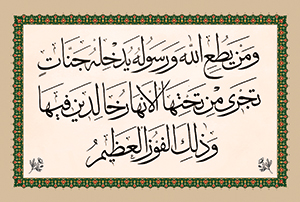 ومن يطع الله ورسوله يدخله جنات
تجري من تحتها الأنهار خالدين فيها
وذلك الفوز العظيم